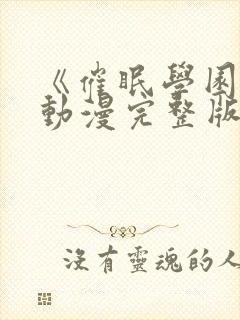 《催眠學園
動漫完整版
沒有靈魂的人